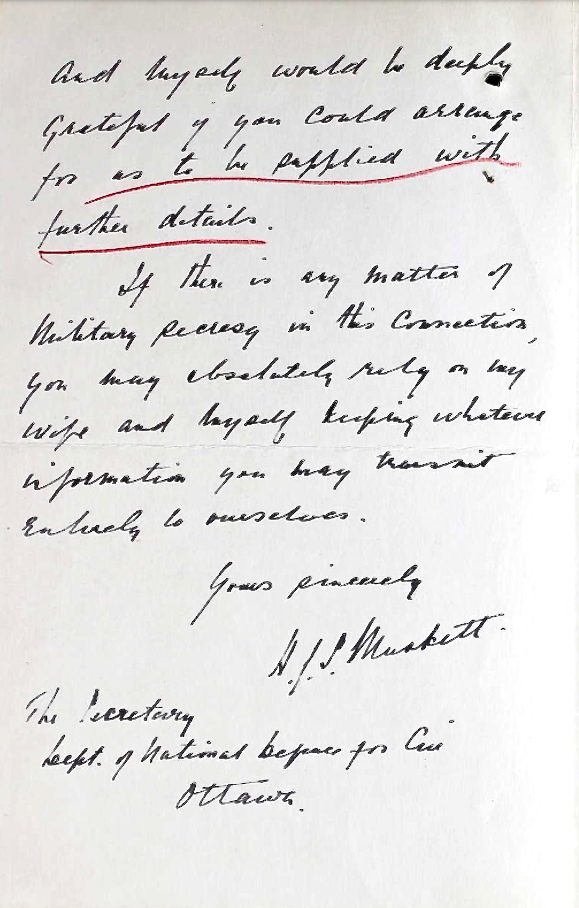 and myself would be deeply
grateful if you could arrange
for us to be supplied with
further details.
If there is any matter of
Military secresy in this connection,
you may absolutely rely on my
wife and myself keeping whatever
information you may transmit
entirely to ourselves.
Yours sincerely
H.J.S. Muskett.
The Secretary
Dept. of National Defence for Air
Ottawa.